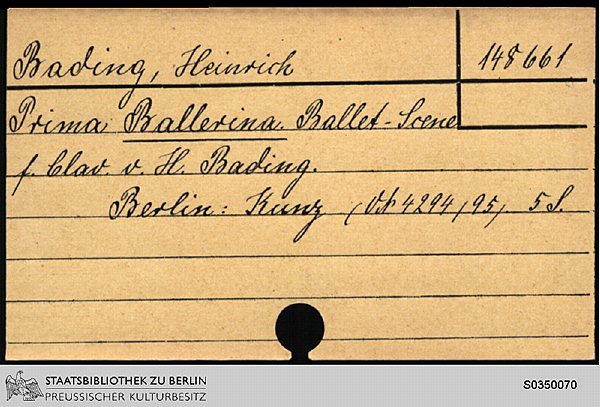 Bading, Heinrich
148661
Prima Ballerina. Ballet-Scene
f. Clav. v. H. Bading.
Berlin: Kunz (Vh 4294/95). 5 S.
STAATSBIBLIOTHEK ZU BERLIN
PREUSSISCHER KULTURBESITZ
S0350070